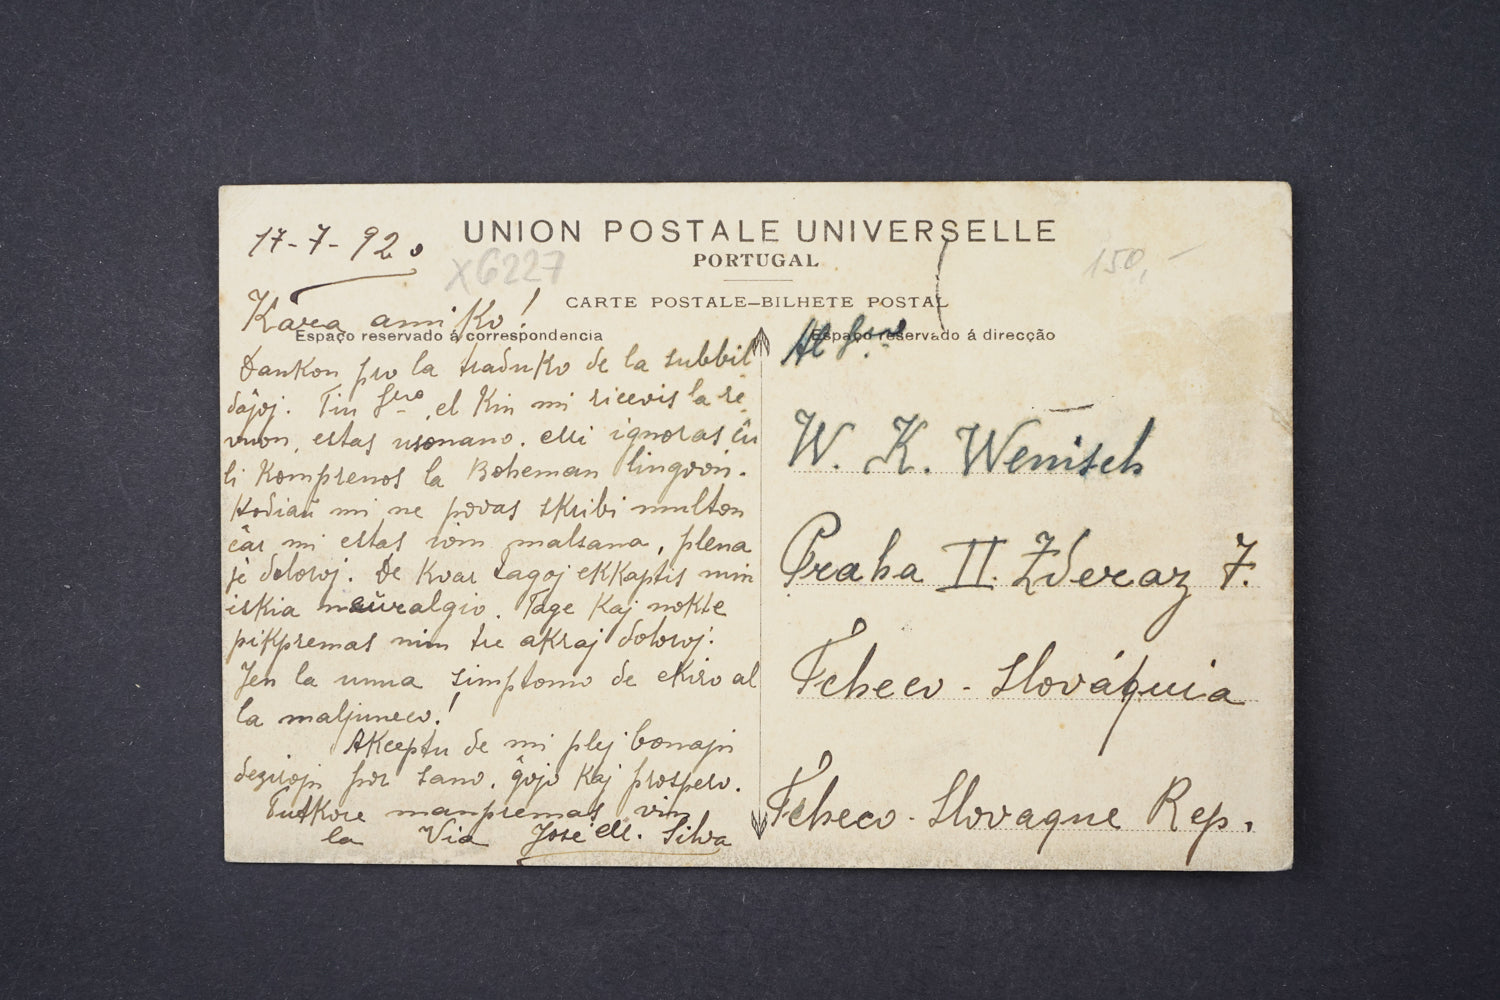 17-7-920
UNION POSTALE UNIVERSELLE
PORTUGAL
X6227
150,-
CARTE POSTALE–BILHETE POSTAL
Espaço reservado á correspondencia
Espaço reservado á direcção
Kara amiko!
Dankon pro la traduko de la subbil
dâjoj. Tiu Sro, el kiu mi ricevis la re
vuon, estas usonano. Mi ignoras ĉu
li komprenos la Boheman lingvon.
Hodiaŭ mi ne povas skribi multon
ĉar mi estas iom malsana, plena
je doloroj. De kvar tagoj ekkaptis min
iskia neŭralgio. Tage kaj nokte
pikpremas min tre akraj doloroj.
Jen la unua simptomo de ekiro al
la maljuneco!
Akceptu de mi plej bonajn
dezirojn por sano, ĝojo kaj prospero.
Tutkore manpremas vin
la Via José M. Silva
Al Sro
W. K. Wenisch
Praha II. Zderaz 7.
Tcheco-Slováquia
Tcheco-Slovaque Rep.